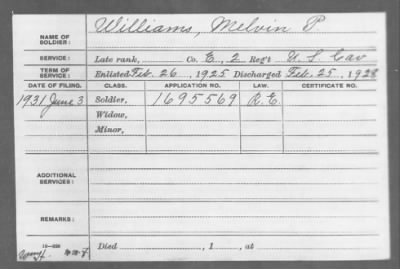 NAME OF SOLDIER: Williams, Melvin P
SERVICE: Late rank, Co. E, 2 Reg't U. S. Cav
TERM OF SERVICE: Enlisted Feb. 26, 1925 Discharged Feb. 25, 1928
DATE OF FILING. CLASS. APPLICATION NO. LAW. CERTIFICATE NO.
1931 June 3 Soldier, 1695569 R.E.
Widow,
Minor,
ADDITIONAL SERVICES:
REMARKS:
Died , 1 , at